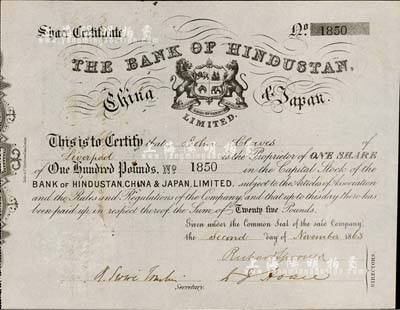 Share Certificate No 1850
THE BANK OF HINDUSTAN,
China & Japan.
LIMITED.
This is to Certify that John of
Liverpool is the Proprietor of ONE SHARE
of One Hundred Pounds, No 1850 in the Capital Stock of the
BANK OF HINDUSTAN, CHINA & JAPAN, LIMITED, subject to the Articles of Association
and the Rules and Regulations of the Company and that up to this day there has
been paid up in respect thereof the Sum of Twenty five Pounds.
Given under the Common Seal of the said Company
the second day of November 1863
DIRECTORS.
Secretary.